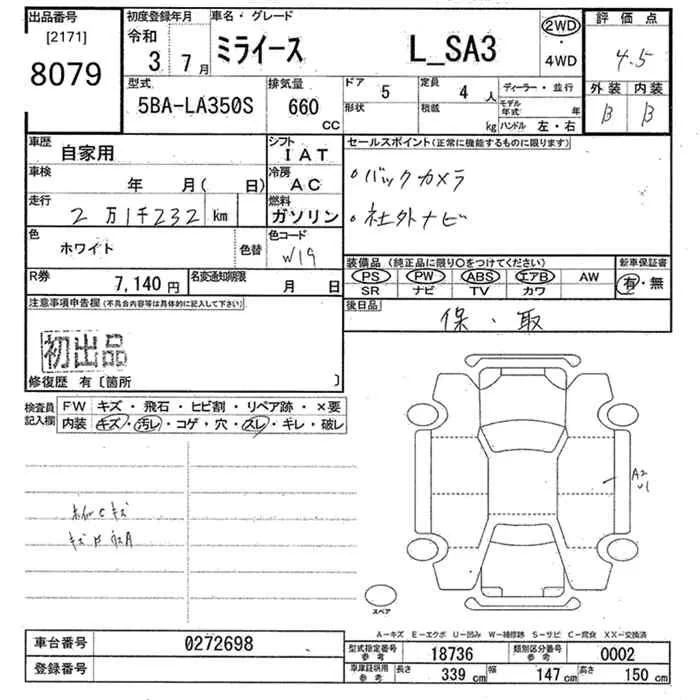 出品番号 初度登録年月 車名・グレード 評価点
[2171] 令和
8079 3年 7月 ミライース L_SA3 2WD・4WD 4.5
型式 排気量 ドア 定員 ディーラー・並行 外装 内装
5BA-LA350S 660 CC 5 4人 モデル年式 年 B B
形状 積載 kg ハンドル 左・右
車歴 自家用 シフト IAT セールスポイント(正常に機能するものに限ります)
車検 年 月( 日) 冷房 AC ・バックカメラ
走行 2万1千232 km 燃料 ガソリン ・社外ナビ
色 ホワイト 色替 色コード W19
装備品(純正品に限り〇をつけてください) 新車保証書
R券 7,140円 名変通知期限 月 日 PS PW ABS エアB AW 有・無
SR ナビ TV カワ
注意事項申告欄(不具合内容等は具体的に記入して下さい) 後日品
保・取
初出品
修復歴 有〔箇所 〕
検査員記入欄 FW キズ・飛石・ヒビ割・リペア跡・×要
内装 キズ・汚レ・コゲ・穴・スレ・キレ・破レ
A2
U1
スペア
A-キズ E-エクボ U-凹み W-補修跡 S-サビ C-腐食 XX-交換済
車台番号 0272698 型式指定番号 参考 18736 類別区分番号 参考 0002
登録番号 車庫証明用 参考 長さ 339 cm 幅 147 cm 高さ 150 cm